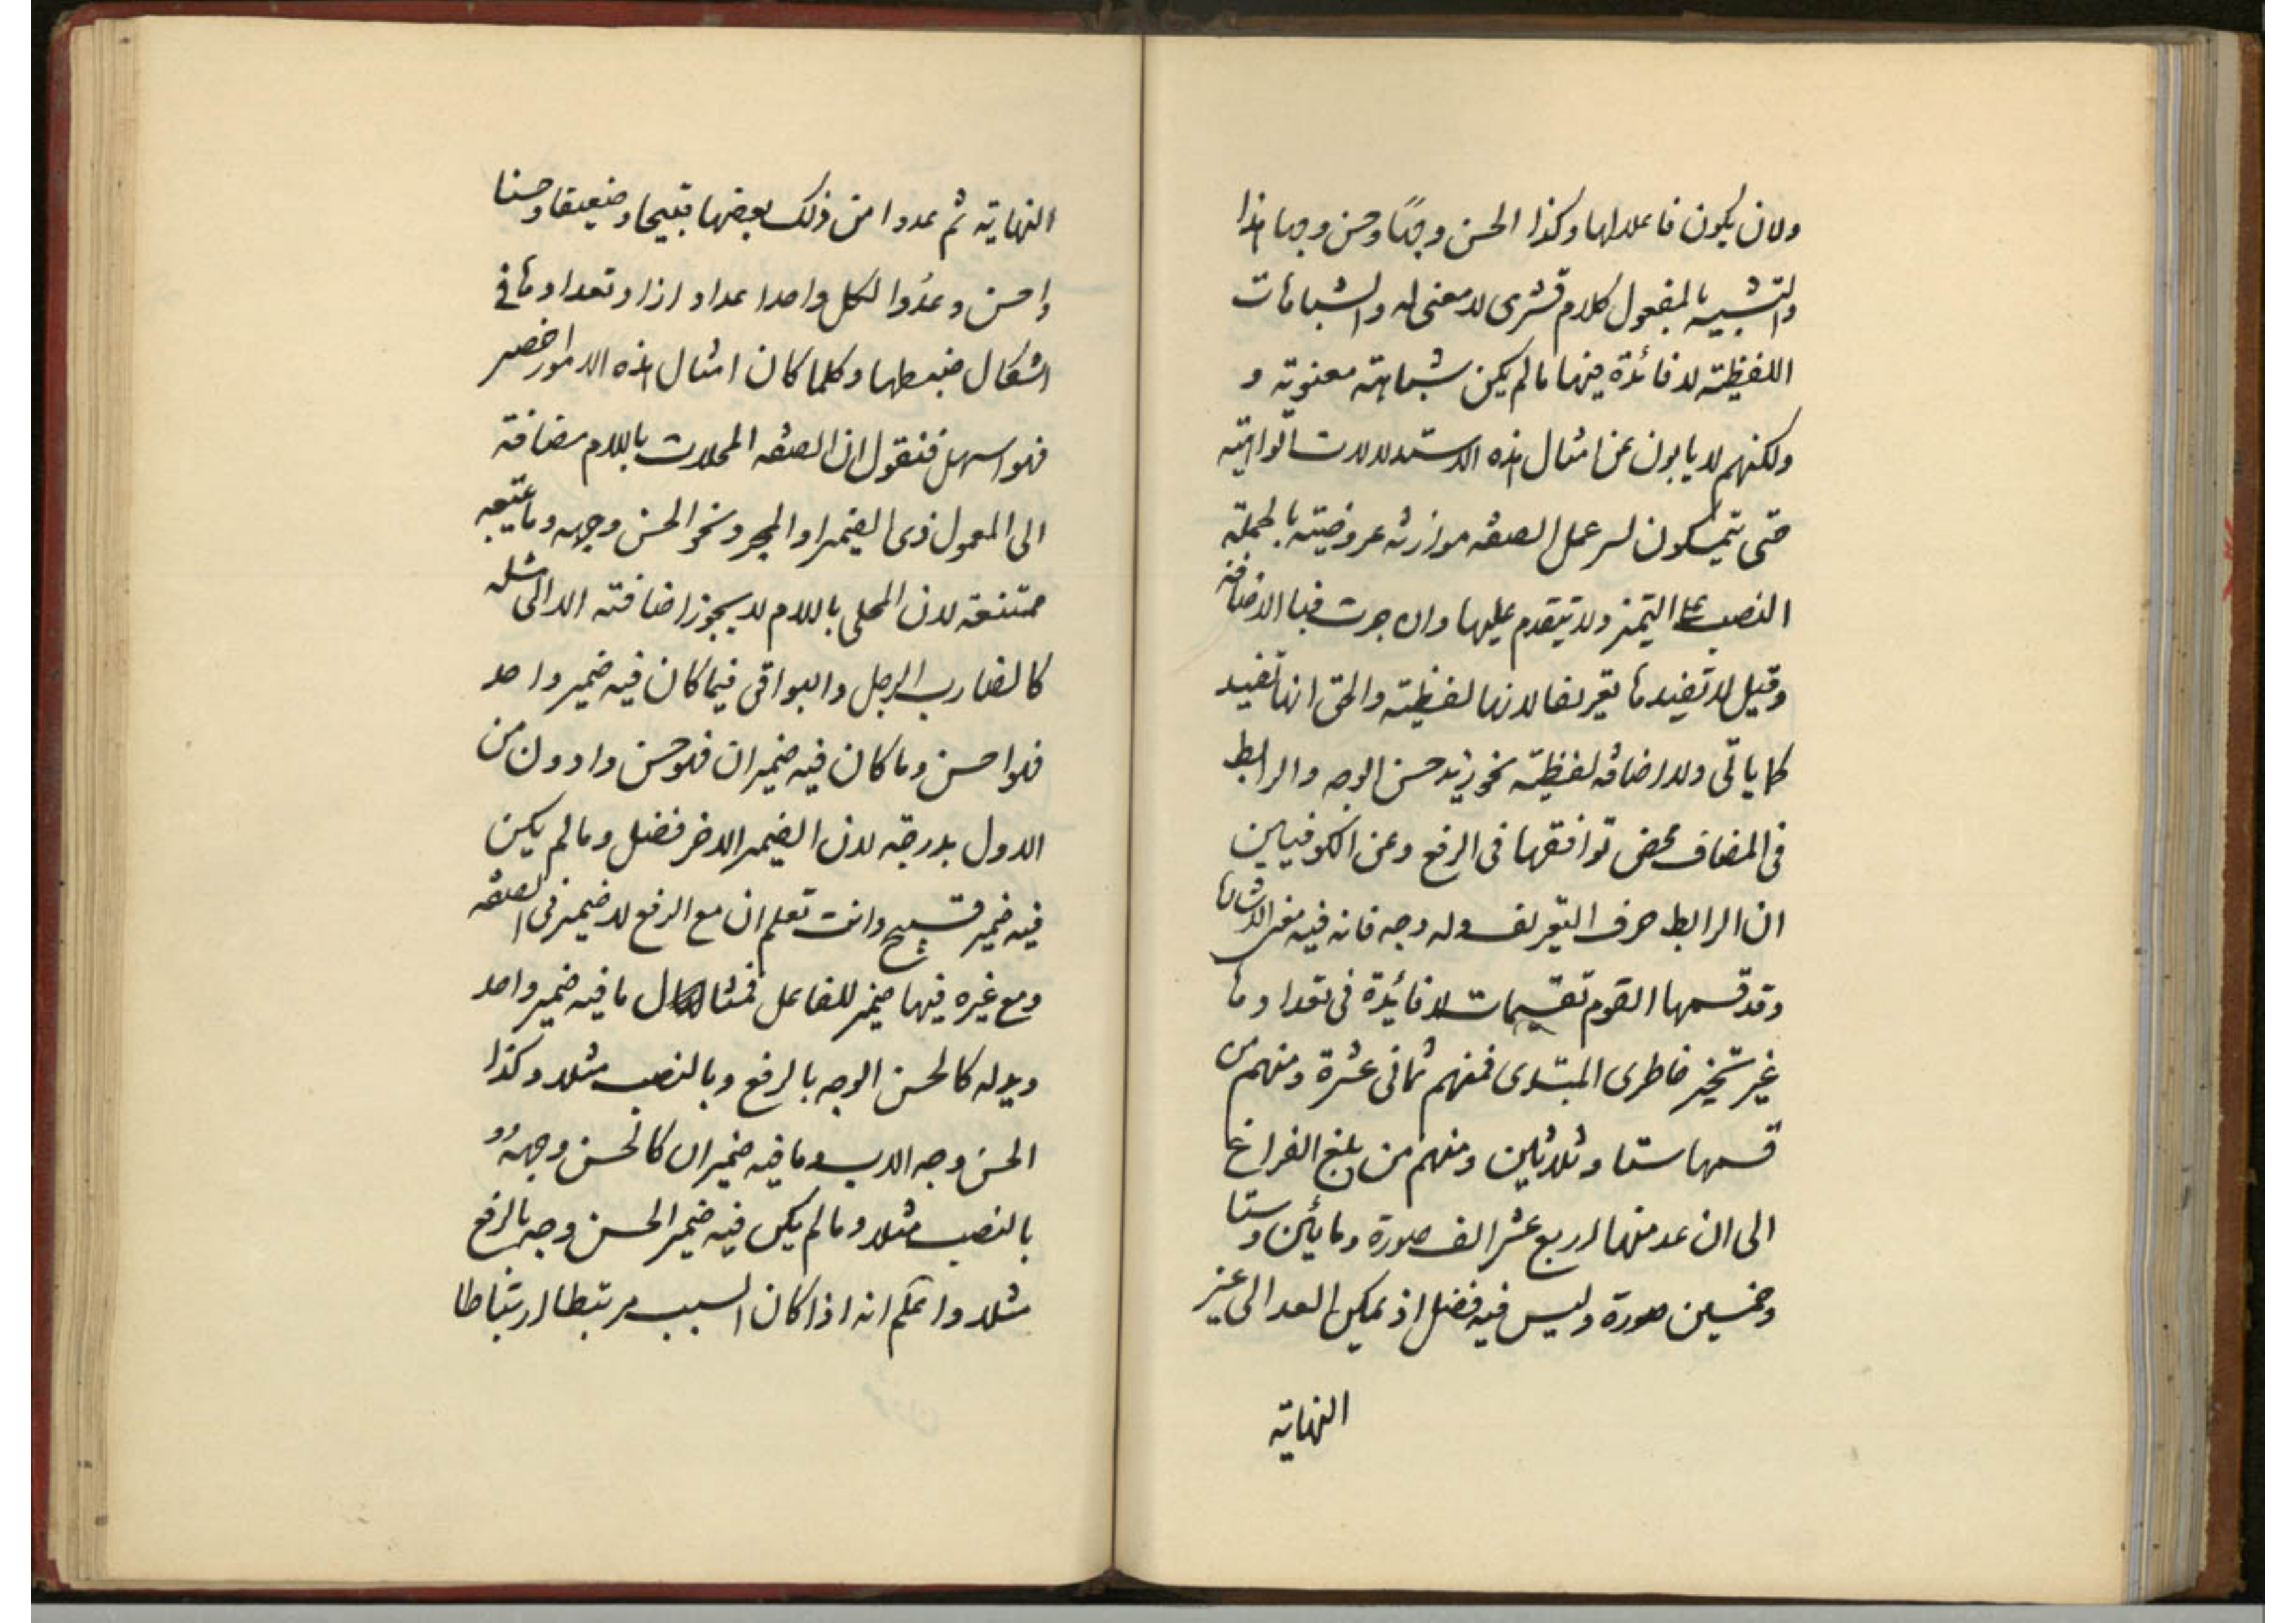 ولان يكون فاعلا لها وكذا الحسن وجهًا وحسن وجها هذا
والتشبيه بالمفعول كلام قشرى لا معنى له والشباهات
اللفظية لا فائدة فيها ما لم يكن شباهته معنوية و
ولكنهم لا يابون عن امثال هذه الاستدلالات الواهية
حتى يتمسكون لسر عمل الصفه موازرثه عروضيته بالجملة
النصب على التميز ولا يتقدم عليها وان جرت فبا الاضافة
وقيل لا تفيدها تعريفا لانها لفظية والحق انها تفيد
كما ياتى ولا اضافه لفظية نحو زيد حسن الوجه والرابط
فى المضاف محض توافقها فى الرفع وعن الكوفيين
ان الرابط حرف التعريف وله وجه فانه فيه معنى الاشارة
وقد قسمها القوم تقسيمات لا فائدة فى تعدادها
غير تحير خاطرى المبتدى فمنهم ثمانى عشرة ومنهم من
قسمها ستا وثلاثين ومنهم من بلغ الفراغ
الى ان عد منها اربع عشر الف صورة ومائين وستا
وخمسين صورة وليس فيه فضل اذ يمكن العد الى غير
النهاية
النهاية ثم عدوا من ذلك بعضها قبيحا وضعيفا وحسنا
واحسن وعدّوا لكل واحدا عدادا زادو تعدادها فى
اشكال ضبطها وكلما كان امثال هذه الامور اخصر
فهو اسهل فنقول ان الصفه المحلات باللام مضافة
الى المعمول ذى الضمير او المجرد نحو الحسن وجهه وما يتبعه
ممتنعة لان المحلى باللام لا يجوز اضافته الا الى مثله
كالضارب الرجل والبواقى فيما كان فيه ضمير واحد
فهو احسن وما كان فيه ضميران فهو حسن وادون من
الاول بدرجة لان الضمير الاخر فضل وما لم يكن
فيه ضمير قبيح وانت تعلم ان مع الرفع لا ضمير فى الصفه
ومع غيره فيها ضمير للفاعل فمثال ما فيه ضمير واحد
وبدله كالحسن الوجه بالرفع وبالنصب مثلا وكذا
الحسن وجه الاب وما فيه ضميران كالحسن وجهه
بالنصب مثلا وما لم يكن فيه ضمير الحسن وجه بالرفع
مثلا واعلم انه اذا كان السبب مرتبطا ارتباطا